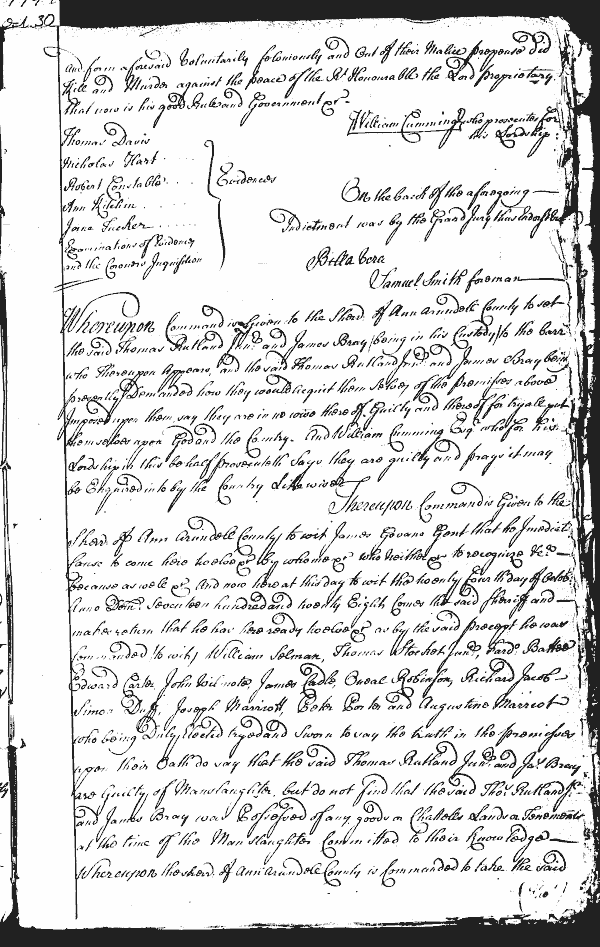 Oct. 30
and form aforesaid Voluntarily feloniously and Out of their Malice prepense did
Kill and Murder against the peace of the Rt. Honourable the Lord proprietary
that now is his good Rule and Government &c.
William Cumming who prosecutes for
his Lordship
Thomas Davis
Nicholas Hart
Robert Constable
Ann Kitchin
Jane Tucker
Examinations of Evidences
and the Coroners Inquisition
Evidences
On the back of the aforegoing
Indictment was by the Grand Jury thus Indorsed
Billa Vera
Samuel Smith foreman
Whereupon Command is Given to the Sherd. of Ann Arundell County to set
the said Thomas Rutland Junr. and James Bray being in his Custody to the barr
who Thereupon appears, and the said Thomas Rutland Junr. and James Bray being
presently Demanded how they would acquit themselves of the premisses above
Imposed upon them say they are in no wise there of Guilty and thereof for tryale put
themselves upon God and the Country. And William Cumming Esqr. who for his
Lordship in this behalf prosecuteth Says they are guilty and prays it may
be Enquired into by the Country Likewise
Thereupon Command is Given to the
Sherr of Ann Arundell County to wit James Govane Gent that he Imediat
Cause to come here twelve &c. by whome &c. who Neither &c. to recognize &c.
because as well &c. And now here at this day to wit the twenty fourth day of Octob.
Anno Dom. Seventeen hundred and twenty Eight Comes the said Sheriff and
makes return that he has here ready twelve &c. as by the said precept he was
Commanded to wit, William Selman, Thomas Stocket Junr. Ferdo. Battee
Edward Carter John Wilmote, James Cadle, Oneal Robinson, Richard Jacob
Simon Duff, Joseph Marricott Peter Porter and Augustine Marricot
who being Duly Elected tryed and Sworn to say the truth in the premisses
upon their Oath do say that the said Thomas Rutland Junr. and Jas. Bray
are Guilty of Manslaughter. but do not find that the said Thos. Rutland Jr.
and James Bray was Possessed of any goods or Chattells Lands or Tenements
at the time of the Manslaughter Committed to their Knowledge
Whereupon the sherr. of Ann Arundell County is Commanded to take the said